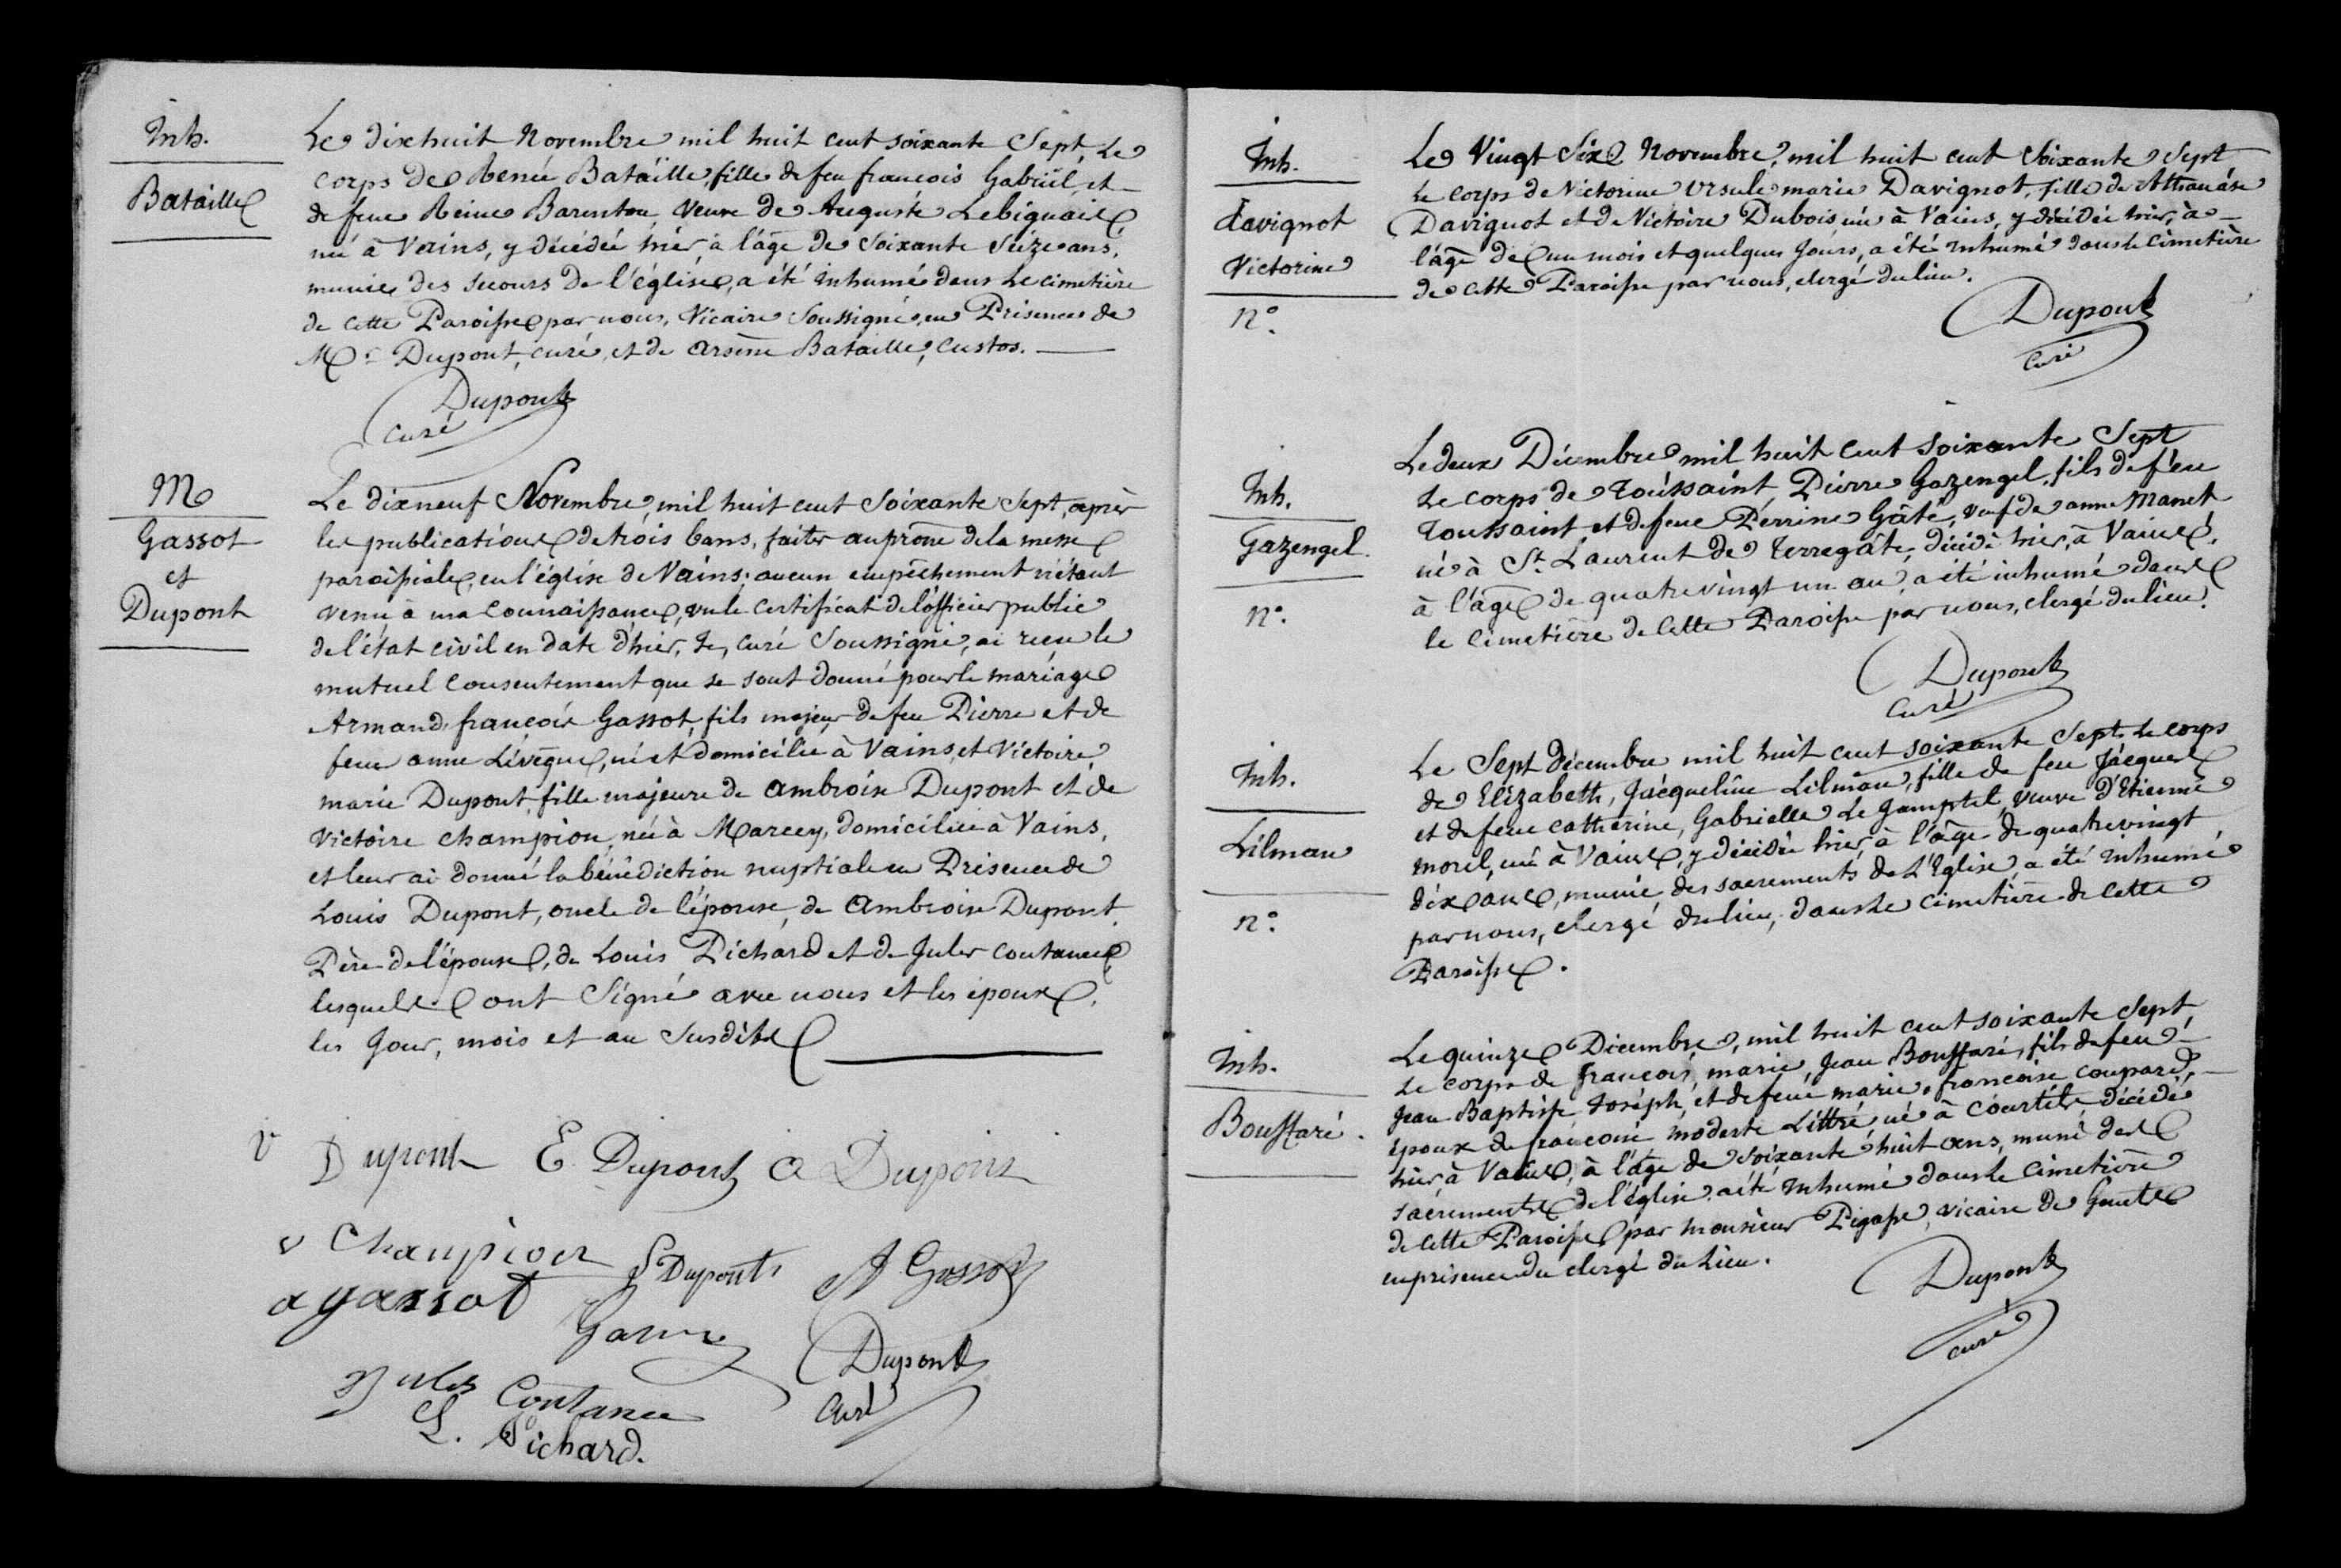 Inh.
Bataille
Le dixhuit Novembre mil huit cent soixante Sept, Le
corps de Renée Bataille, fille de feu francois Gabriël, et
de feue Reine Barenton, veuve de Auguste Lebiguais
né à Vains, y décédée hier, à l'âge de soixante seize ans,
munie des secours de l'église, a été inhumé dans Le cimetière
de cette Paroisse par nous, Vicaire Soussigné, en Présence de
Mr Dupont, curé, et de Arsène Bataille, Custos.
Dupont
curé
M
Gassot
et
Dupont
Le dixneuf Novembre, mil huit cent soixante Sept, après
les publications de trois bans, faites au prône de la messe
paroissiale, en l'église de Vains; aucun empêchement n'étant
venu à ma connaissance, vu le certificat de l'officier public
de l'état civil en date d'hier, Je, curé Soussigné, ai recu le
mutuel consentement que se sont donné pour le mariage
Armand francois Gassot, fils majeur de feu Pierre et de
feue anne Livêque, né et domicilié à Vains, et Victoire,
marie Dupont, fille majeure de Ambroise Dupont et de
Victoire Champion, née à Marcey, domiciliée à Vains,
et leur ai donné la bénédiction nuptiale en Présence de
Louis Dupont, oncle de l'épouse, de Ambroise Dupont
Père de l'épouse, de Louis Pichard et de Jules Coutance,
lesquels ont Signé avec nous et les époux,
les Jour, mois et an Susdits
V Dupont E. Dupont A Dupont
v Champion L Dupont A Gassot
a gassot
Dupont
Curé
Jules Coutance
L. Pichard.
Inh.
davignot
Victorine
n°.
Le Vingt Six Novembre, mil huit cent Soixante Sept
Le corps de Victorine Ursule marie Davignot, fille de Athanáse
Davignot et de Victoire Dubois, née à Vains, y décédée hier, à
l'âge de un mois et quelques Jours, a été inhumé dans le Cimetière
de cette Paroisse par nous, clergé du lieu.
Dupont
Curé
Inh.
Gazengel.
n°.
Le deux Décembre mil huit cent soixante Sept
Le corps de Toussaint, Pierre Gazengel, fils de feu
Toussaint et de feue Perrine Gâté, veuf de anne Manet
né à St. Laurent de Terregâte, décédé hier, à Vains,
à l'âge de quatrevingt un an, a été inhumé dans
le Cimetière de cette Paroisse par nous, clergé du lieu.
Dupont
Curé
Inh.
Lilman
n°.
Le Sept décembre mil huit cent soixante Sept, Le corps
de Elizabeth, Jacqueline Lilman, fille de feu Jacques
et de feue Catherine, Gabrielle Le Jamptel, veuve d'Etienne
morel, née à Vains, y décédée hier, à l'âge de quatrevingt
dix ans, munie des sacrements de L'Eglise, a été inhumé
par nous, clergé du lieu, dans Le cimetière de cette
Paroisse.
Inh.
Bouffaré.
Le quinze Décembre, mil huit cent soixante Sept,
Le corps de francois, marie, Jean Bouffaré, fils de feu
Jean Baptiste Joseph, et de feue marie, francoise coupard,
époux de francoise modeste Littré, né à Courtils décédé
hier à Vains, à l'âge de soixante huit ans, muni des
sacrements de l'église, a été inhumé dans Le Cimetière
de cette Paroisse par monsieur Pigasse, vicaire de Genêts
en présence du clergé du Lieu.
Dupont
curé